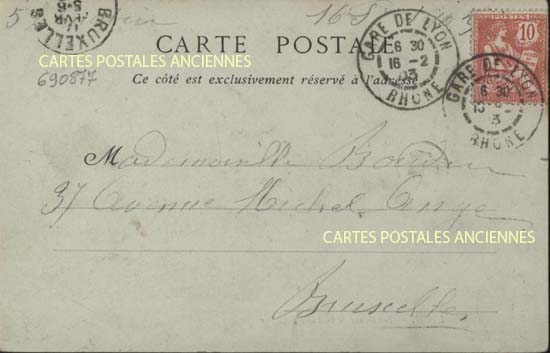 BRUXELLES
5-6
16
CARTE POSTALE
GARE DE LYON
6 30
16 -2
03
RHONE
POSTES
10
GARE DE LYON
6 30
3
RHONE
CARTES POSTALES ANCIENNES
690877
Ce côté est exclusivement réservé à l'adresse
Mademoiselle
37 Avenue Michel Ange
CARTES POSTALES ANCIENNES
Bruxelles